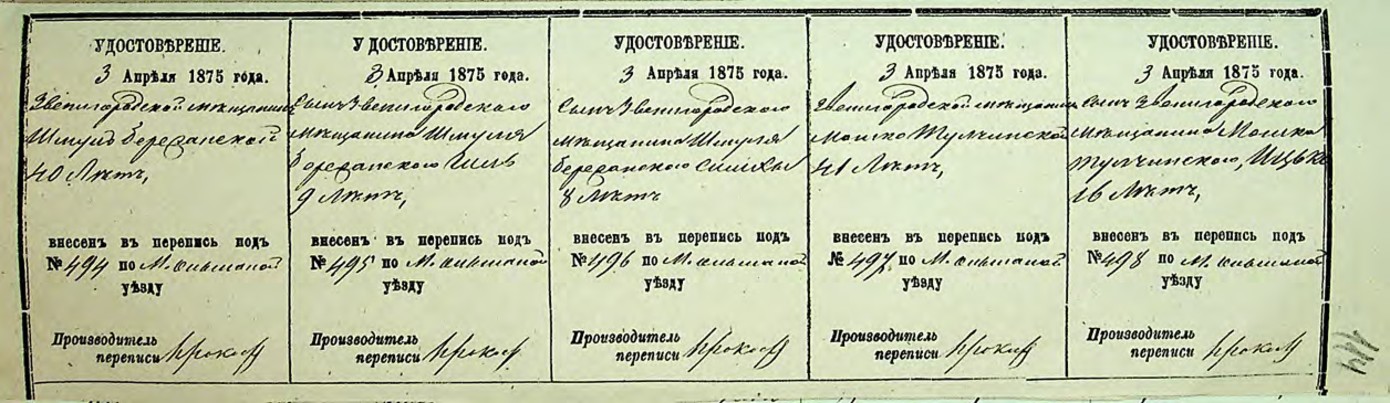 УДОСТОВѢРЕНІЕ.
3 Апрѣля 1875 года.
Звенигородской мѣщанинъ
Шмуль Березанской
40 Лѣтъ,
внесенъ въ перепись подъ
№ 494 по М. Ольшаной
уѣзду
Производитель
переписи
УДОСТОВѢРЕНІЕ.
3 Апрѣля 1875 года.
Сынъ Звенигородского
мѣщанина Шмуля
Березанского
9 Лѣтъ,
внесенъ въ перепись подъ
№ 495 по М. Ольшаной
уѣзду
Производитель
переписи
УДОСТОВѢРЕНІЕ.
3 Апрѣля 1875 года.
Сынъ Звенигородского
мѣщанина Шмуля
Березанского
8 Лѣтъ
внесенъ въ перепись подъ
№ 496 по М. Ольшаной
уѣзду
Производитель
переписи
УДОСТОВѢРЕНІЕ.
3 Апрѣля 1875 года.
Звенигородской мѣщанинъ
Мошко Тульчинской
41 Лѣтъ,
внесенъ въ перепись подъ
№ 497 по М. Ольшаной
уѣзду
Производитель
переписи
УДОСТОВѢРЕНІЕ.
3 Апрѣля 1875 года.
Сынъ Звенигородского
мѣщанина Мошка
Тульчинского, Ицько
16 Лѣтъ,
внесенъ въ перепись подъ
№ 498 по М. Ольшаной
уѣзду
Производитель
переписи